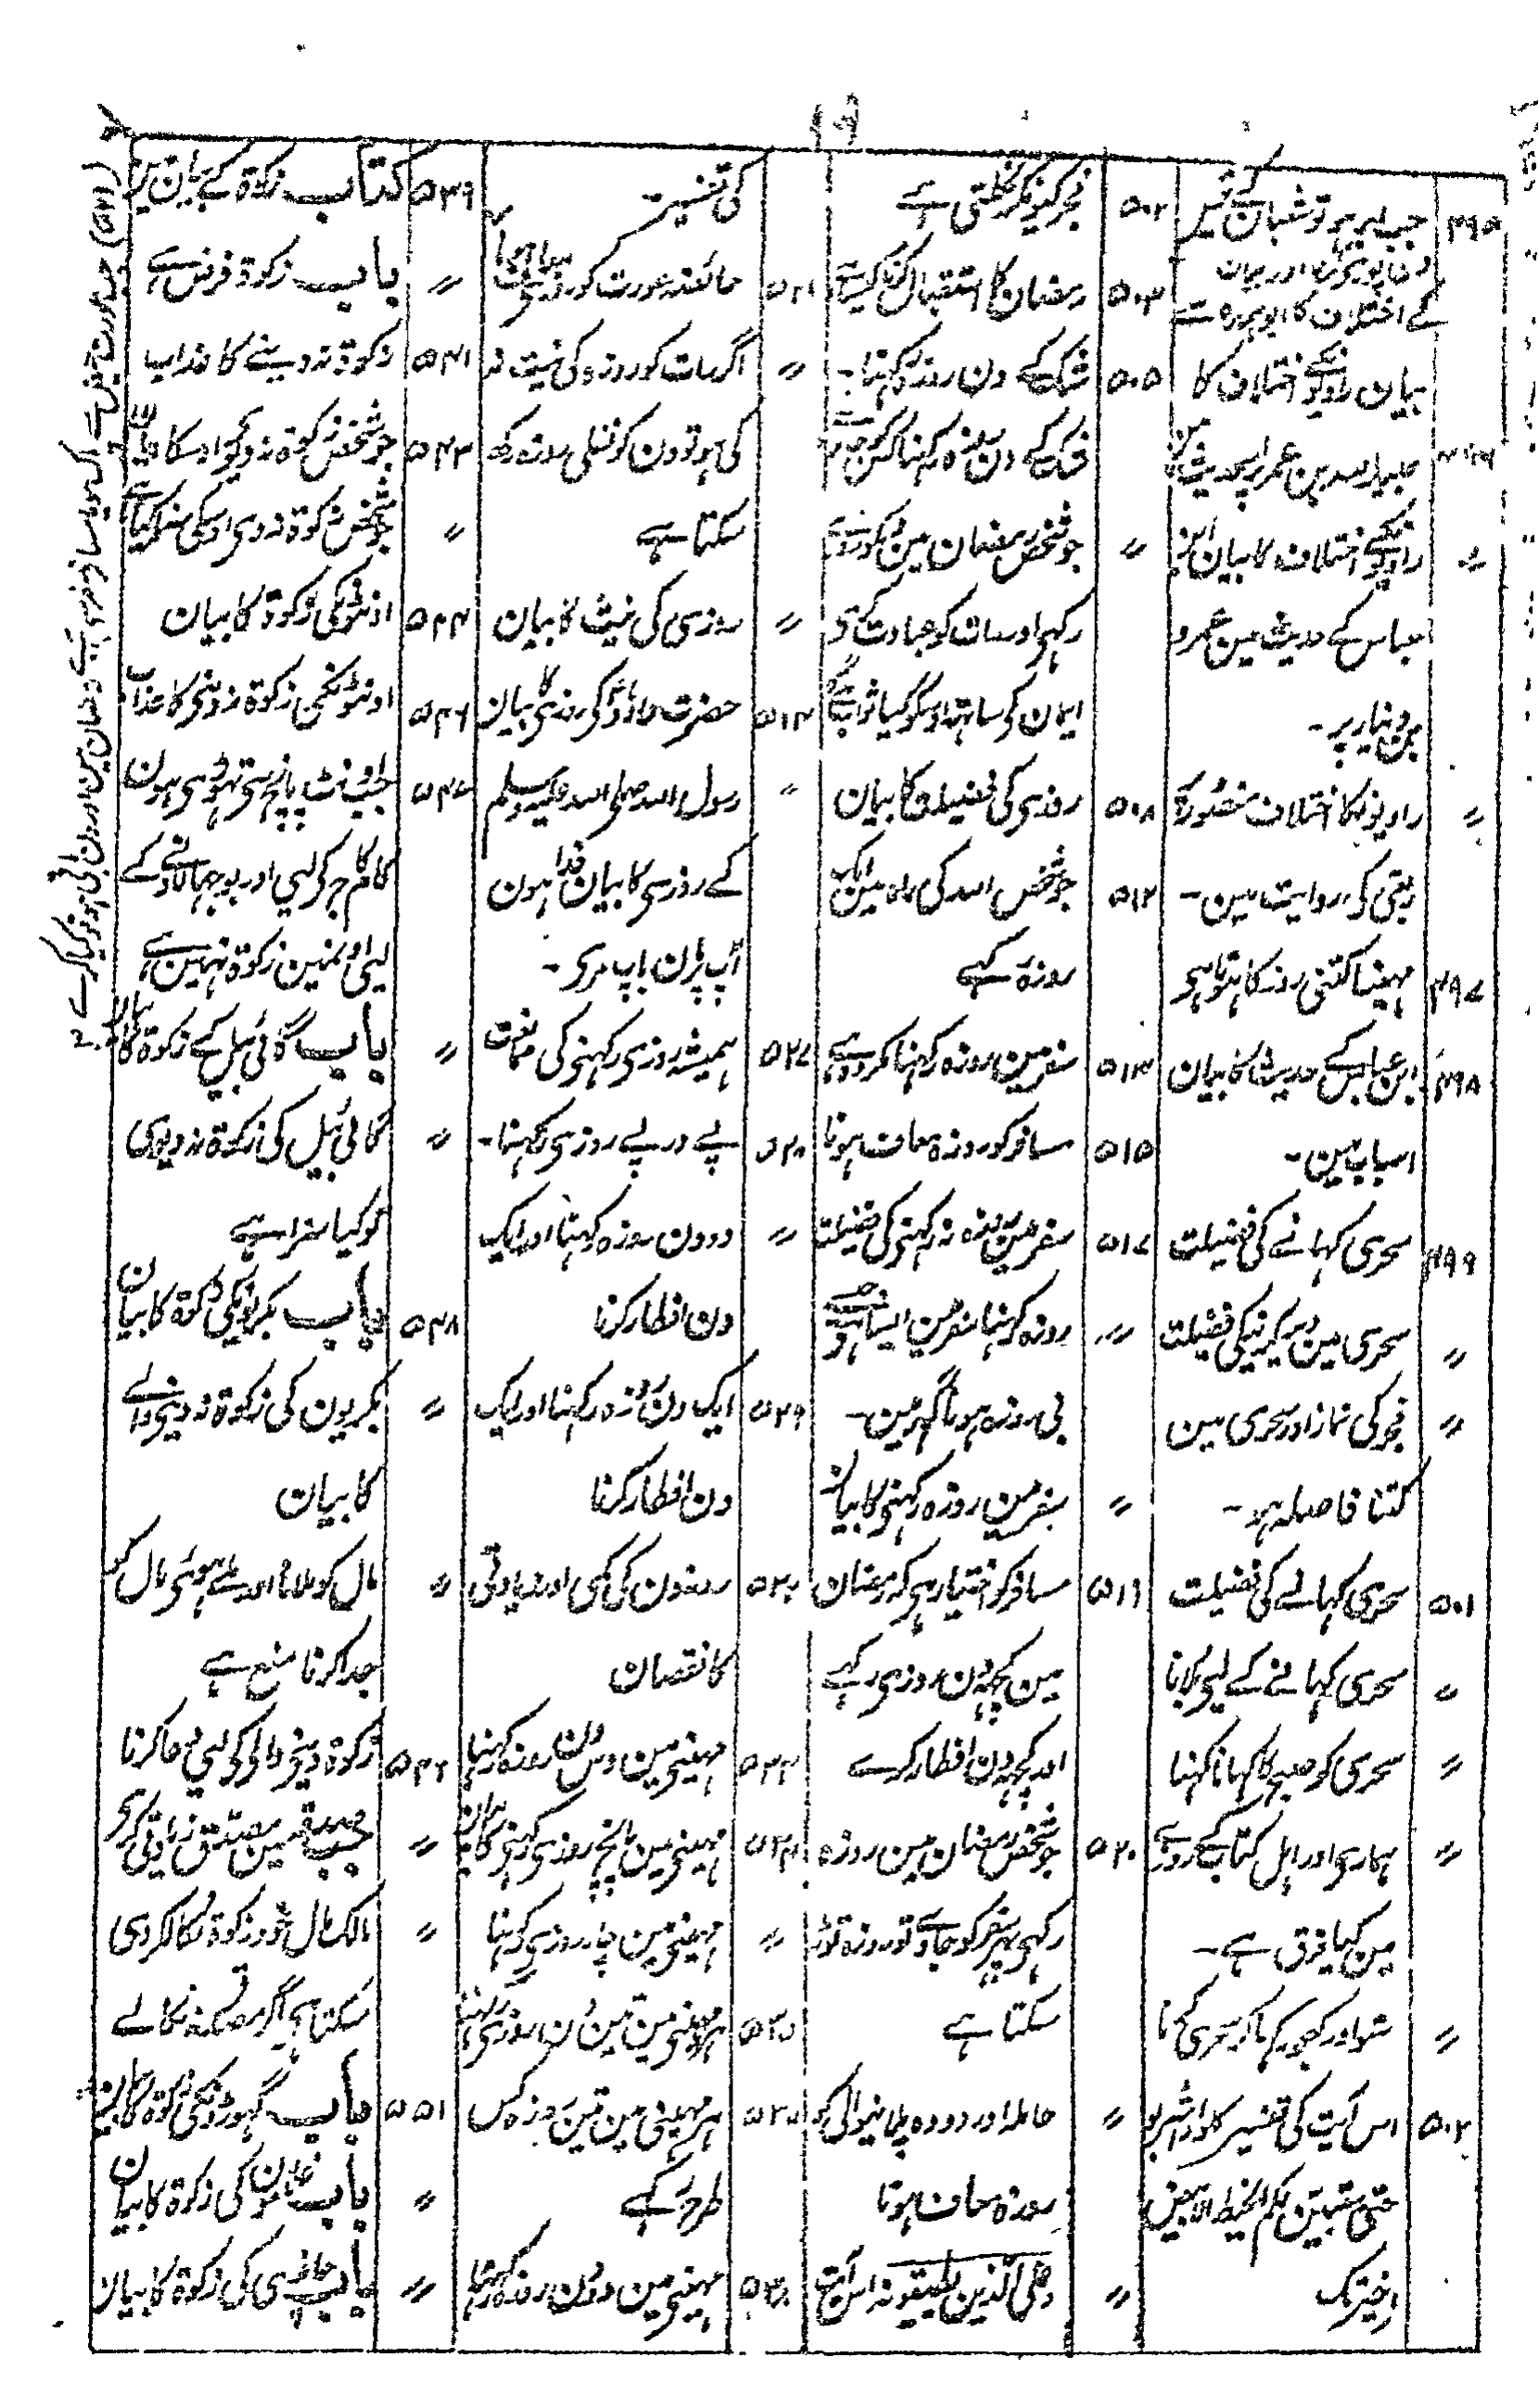 ۱۹
۴۹۵ جب ابر ہو تو شعبان کے تیس
دن پوری کرنا اور بیان
کے اختلاف کا ابوہریرہ سے
بیان راویونکے اختلاف کا
عبیداللہ بن عمر پر اس حدیث مین
〃 راویونکے اختلاف کا بیان ابن
عباس کے حدیث مین عمرو
بن دینار پر۔
〃 راویونکا اختلاف منصور پر
ربعی کی روایت مین۔
۴۹۷ مہینا کتنی روز کا ہوتا ہی
۴۹۸ ابن عباس کے حدیث کا بیان
اسباب مین۔
۴۹۹ سحری کہانے کی فضیلت
〃 سحری مین دیر کرنیکی فضیلت
〃 فجر کی نماز اور سحری مین
کتنا فاصلہ ہو۔
۵۰۱ سحری کہانے کی فضیلت
〃 سحری کہانے کے لیے بلانا
〃 سحری کو صبح کا کہانا کہنا
〃 ہماری اور اہل کتاب کے روزے
مین کیا فرق ہے۔
〃 ستو اور کھجور کہا کر سحری کرنا
۵۰۲ اس آیت کی تفسیر کلوا واشربوا
حتی یتبین لکم الخیط الابیض
اخیر تک
۵۰۲ فجر کیونکر نکلتی ہے
۵۰۳ رمضان کا استقبال کرنا کیسا ہے
۵۰۵ شک کے دن روزہ رکہنا۔
شک کے دن روزہ رکہنا کسکو
〃 جو شخص رمضان مین دنکو روزہ
رکہی اور رات کو عبادت کری
ایمان کی ساتہ اوسکو کیا ثواب ہے
۵۰۸ روزی کی فضیلت کا بیان
۵۱۲ جو شخص اللہ کی راہ مین ایک
روزہ رکہے
۵۱۳ سفر مین روزہ رکہنا مکروہ ہے
۵۱۵ مسافر کو روزہ معاف ہونا
۵۱۷ سفر مین روزہ نہ رکہنی کی فضیلت
〃 روزہ رکہنا سفر مین ایسا ہے جیسے
بی روزہ ہونا گہر مین۔
〃 سفر مین روزہ رکہنی کا بیان
۵۱۹ مسافر کو اختیار ہی کہ رمضان
مین کچہ دن روزی رکہے
اور کچہ دن افطار کرے
۵۲۰ جو شخص رمضان مین روزہ
رکہی پہر سفر کو جاوے تو روزہ توڑ
سکتا ہے
〃 حاملہ اور دودہ پلانیوالی کو
روزہ معاف ہونا
〃 وعلی الذین یطیقونہ اس آیت
کی تفسیر۔
۵۲۱ حائضہ عورت کو روزی
〃 اگر رات کو روزہ کی نیت نہ
کی ہو تو دن کو نفلی روزہ رکہ
سکتا ہے
〃 روزی کی نیت کا بیان
حضرت داؤد کی روزی کا بیان
〃 رسول اللہ صلی اللہ علیہ وسلم
کے روزی کا بیان فدا ہون
آپ پر مان باپ میری۔
۵۲۷ ہمیشہ روزی رکہنی کی ممانعت
۵۲۸ پے در پے روزی رکہنا۔
〃 دو دن روزہ رکہنا اور ایک
دن افطار کرنا
۵۲۹ ایک دن روزہ رکہنا اور ایک
دن افطار کرنا
روزون کی کمی اور زیادتی
کا نقصان
مہینی مین دس دن روزہ رکہنا
مہینی مین پانچ روزی رکہنی کا بیان
〃 مہینی مین چار روزی رکہنا
مہینی مین تین دن روزی رکہنا
ہر مہینی مین تین روزہ کس
طرح رکہے
مہینی مین دو دن روزہ رکہنا
۵۳۹ کتاب زکوۃ کے بیان مین
〃 باب زکوۃ فرض ہے
۵۴۱ زکوۃ نہ دینے کا عذاب
۵۴۳ جو شخص زکوۃ نہ دیوی اوسکا بیان
〃 جو شخص زکوۃ نہ دی اوسکی سزا کیا ہے
۵۴۴ اونٹونکی زکوۃ کا بیان
۵۴۶ اونٹونکی زکوۃ نہ دینی کا عذاب
۵۴۷ جب اونٹ پانچ سی تہوڑی ہون
کام کاج کی لیی اور بوجہ لادنے کے
لیی اونمین زکوۃ نہین ہے
〃 باب گائی بیل کے زکوۃ کا بیان
〃 گائی بیل کی زکوۃ نہ دیوی
تو کیا سزا ہے
۵۴۸ باب بکریونکی زکوۃ کا بیان
〃 بکریون کی زکوۃ نہ دینی والے
کا بیان
〃 مال کو ملانا اور ملے ہوئی مال کو
جدا کرنا منع ہے
۵۴۹ زکوۃ دینی والی کی لیی دعا کرنا
〃 جب صدقہ مین مصدق زیادتی کری
〃 مالک مال خود زکوۃ نکالکر دی
سکتا ہی اگر مصدق نہ نکالے
۵۵۱ باب گہوڑونکی زکوۃ کا بیان
〃 باب غلامون کی زکوۃ کا بیان
〃 باب چاندی کی زکوۃ کا بیان
(۵۲۱) جب عورت حیض سے پاک ہو یا مسافر سفر سے آوے رمضان مین اور دن باقی ہو تو کیا کرے